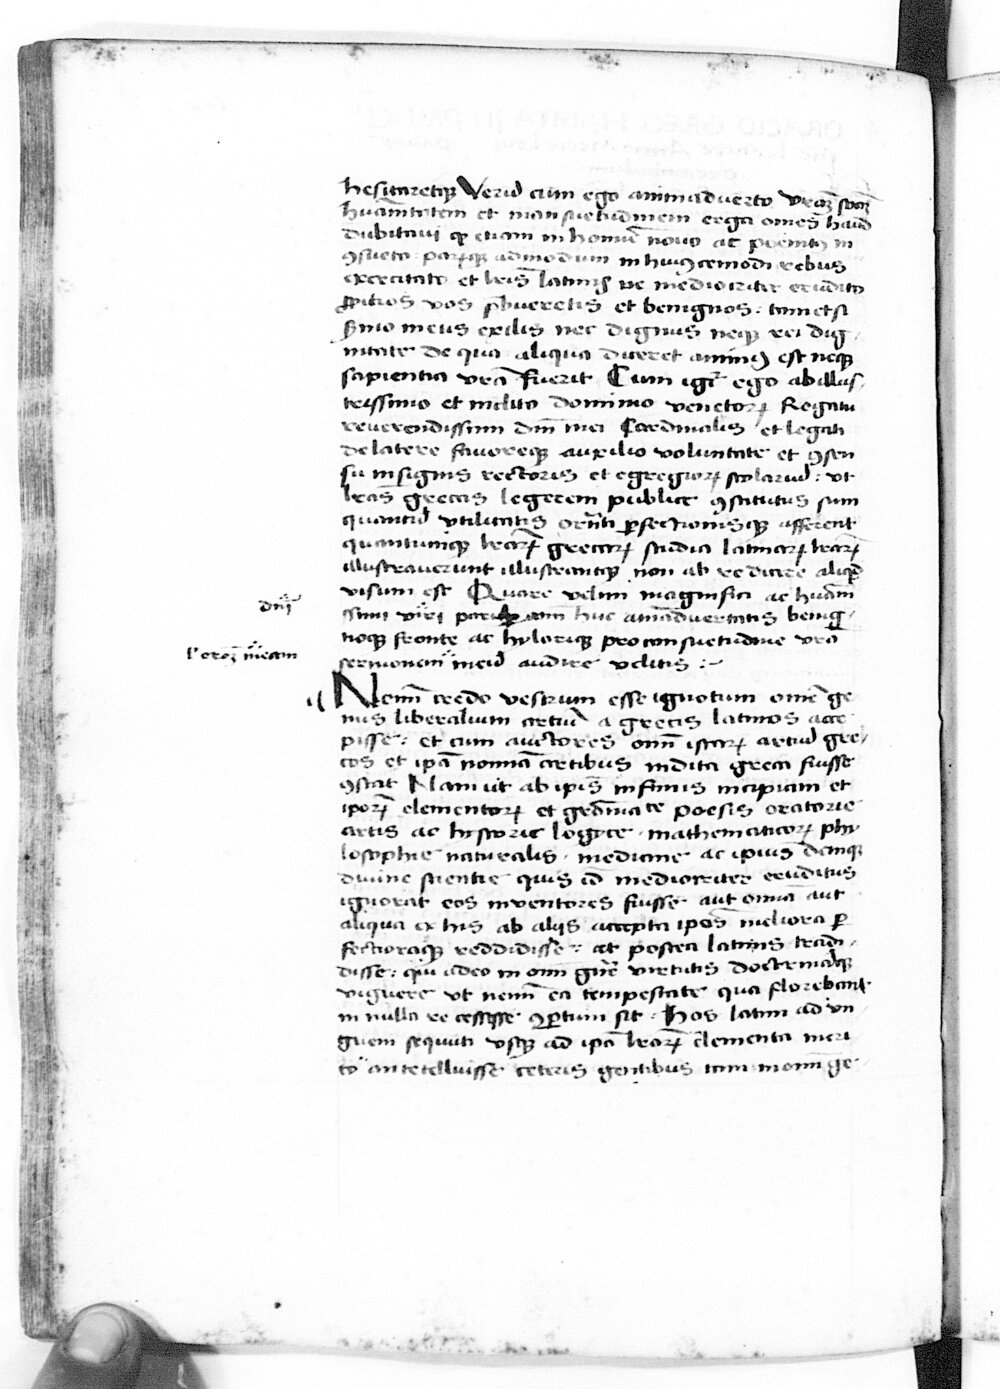 hesitaretq Verũ cum ego animaduerto vraȝ
huãnitatem et mansuetudinem erga om̃es haud
dubitaui qͥ etiam in homiē nouo ac penitꝰ in
ꝯsueto parũq admodum in huiꝰcemodi rebus
exercitato et lr̃is latinis ve mediocriter erudito
ꝓpitios vos phueretis et benignos : tametsi
ẜmo meus exilis nec dignus neqꝫ rei dig
nitate de qua aliqua diceret animꝰ est neqꝫ
sapientia vrã fuerit Cum igr̃ ego ab illus
trissimo et inclito dominio venetoꝝ Rogatu
reuerendissimi dñi mei Cardinalis et legati
de latere fauoreqꝫ auxilio voluntate et ꝯsen
su insignis rectoris et egregioꝝ scolariũ : vt
lrãs grecas legerem publice ꝯstitutus sum
quantũ vtilitatis orñti ꝑfectionisqꝫ afferent
quantumqꝫ lrãꝝ grecaꝝ studia latinaꝝ lrãꝝ
illustrauerunt illustrantqꝫ non ab re dicere aliqͥd
visum est Quare velim magnifici ac huãni
ssimi viri huc aĩaduertatis benig
noqꝫ fronte ac hylariqꝫ pro consuetudine vrã
sermonem meũ audire velitis :~
dñi
meam
Neminẽ credo vestrum esse ignotum om̃e ge
nus liberalium artiũ a grecis latinos acce
pisse : et cum auctores om̃i istaꝝ artiũ gre
cos et ipã nomina artibus indita greca fuisse
ꝯstat Nam ut ab ipis̃ infimis incipiam et
ipoꝝ elementoꝝ et grãmate poesis oratorie
artis ac hystorie logyce mathematicoꝝ phy
losophie naturalis medicine ac ipius deniqꝫ
diuine scientie quis iã mediocriter eruditus
ignorat eos inuentores fuisse aut omnia aut
aliqua ex his ab alijs accepta ipos̃ meliora ꝑ
fectioraqꝫ reddidisse : at postea latinis tradi
disse : qui adeo in om̃i gñe virtutis doctrinaqꝫ
viguere vt nemĩ ea tempestate qua florebant
in nulla re cessisse ꝯꝑtum sit Hos latini ad vn
guem sequuti vsqꝫ ad ipã lrãꝝ elementa meri
to antetelluisse ceteris gentibus tum in om̃i ge